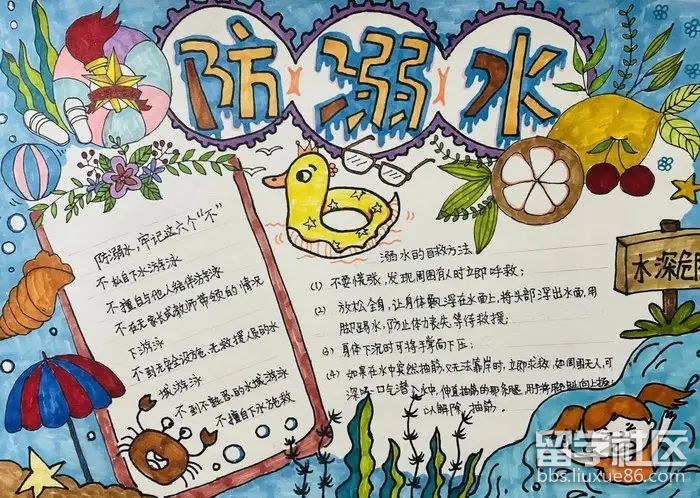 防溺水
防溺水,牢记这六个“不”
不私自下水游泳
不擅自与他人结伴游泳
不在无家长或教师带领的情况
下游泳
不到无安全设施、无救援人员的水
域游泳
不到不熟悉的水域游泳
不擅自下水施救
溺水的自救方法
(1) 不要慌张,发现周围有人时立即呼救;
(2) 放松全身,让身体飘浮在水面上,将头部浮出水面,用
脚踢水,防止体力丧失,等待救援;
(3) 身体下沉时可将手掌向下压;
(4) 如果在水中突然抽筋,又无法靠岸时,立即求救,如周围无人,可
深吸一口气潜入水中,伸直抽筋的那条腿,用手将脚趾向上扳,
以解除抽筋.
水深危
留学社区
bbs.liuxue86.com